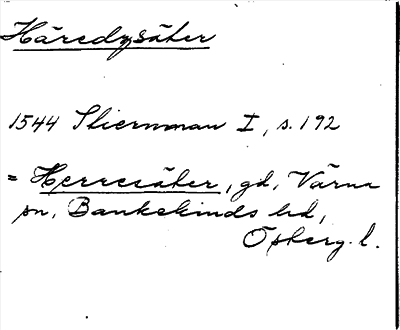 Häredzsäter
1544 Stiernman I, s. 192
= Herresäter, gd, Värna
sn, Bankekinds hd,
Östergl.